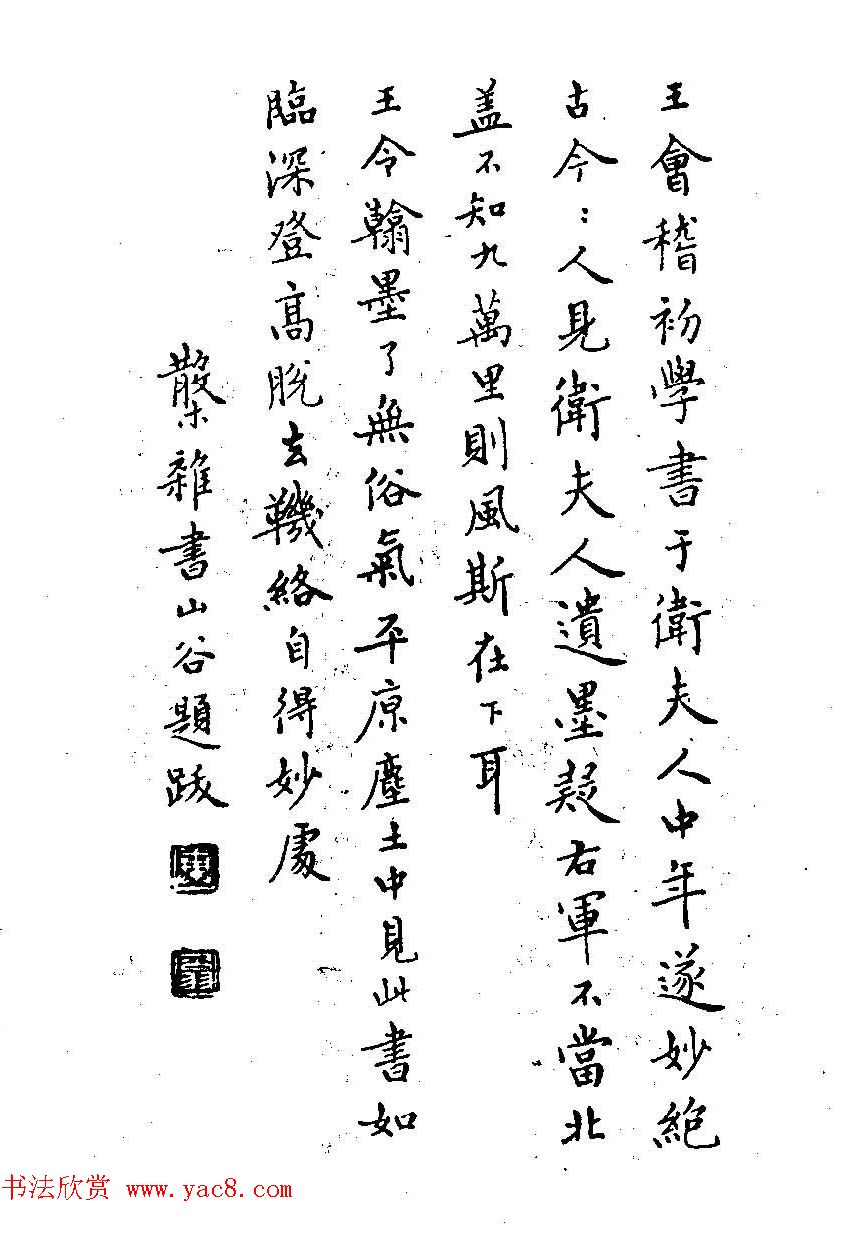 王會稽初學書于衛夫人中年遂妙絕
古今〻人見衛夫人遺墨疑右軍不當北
盖不知九萬里則風斯在下耳
王令翰墨了無俗氣平原塵土中見此書如
臨深登高脫去鞿絡自得妙處
檠雜書山谷題跋
书法欣赏 www.yac8.com